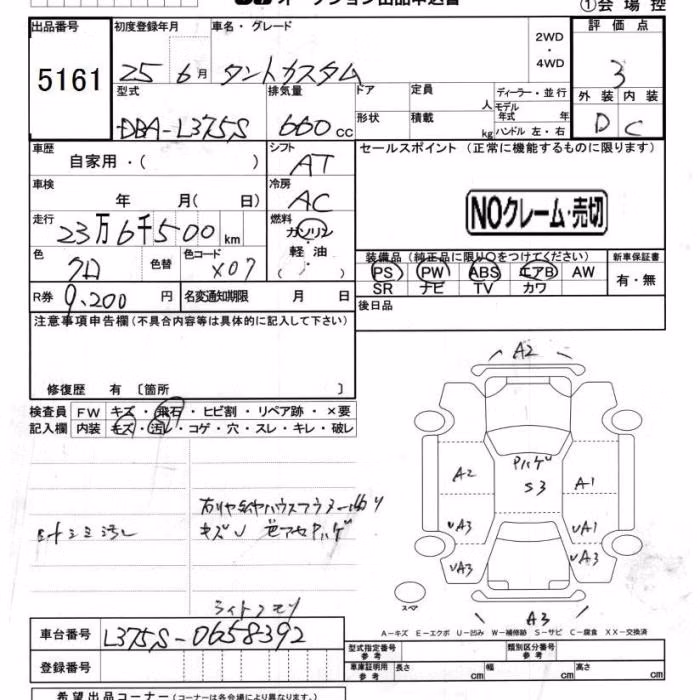 オークション出品申込書
①会場控
出品番号
5161
初度登録年月
25 6月
車名・グレード
タントカスタム
2WD
・
4WD
評価点
3
外装 内装
D C
型式
DBA-L375S
排気量
660 cc
ドア
形状
定員
人
積載
kg
ディーラー・並行
モデル
年式 年
ハンドル 左・右
車歴
自家用・( )
シフト
AT
車検
年 月( 日)
冷房
AC
走行
23万6千500 km
燃料
ガソリン
軽油
( ・ )
色
クロ
色替
色コード
X07
R券
9,200 円
名変通知期限 月 日
セールスポイント (正常に機能するものに限ります)
NOクレーム・売切
装備品 (純正品に限り○をつけてください)
PS PW ABS エアB AW
SR ナビ TV カワ
新車保証書
有・無
後日品
注意事項申告欄 (不具合内容等は具体的に記入して下さい)
修復歴 有 〔箇所 〕
検査員 FW キズ・飛石・ヒビ割・リペア跡・×要
記入欄 内装 キズ・汚レ・コゲ・穴・スレ・キレ・破レ
シミ汚レ
キズU
A2
A2
S3
A1
UA3
UA1
UA3
UA3
A3
スペア
A-キズ E-エクボ U-凹み W-補修跡 S-サビ C-腐食 XX-交換済
車台番号
L375S-0658392
登録番号
型式指定番号
参考
類別区分番号
参考
車庫証明用
参考
長さ cm 幅 cm 高さ cm
希望出品コーナー (コーナーは各会場により異なります)